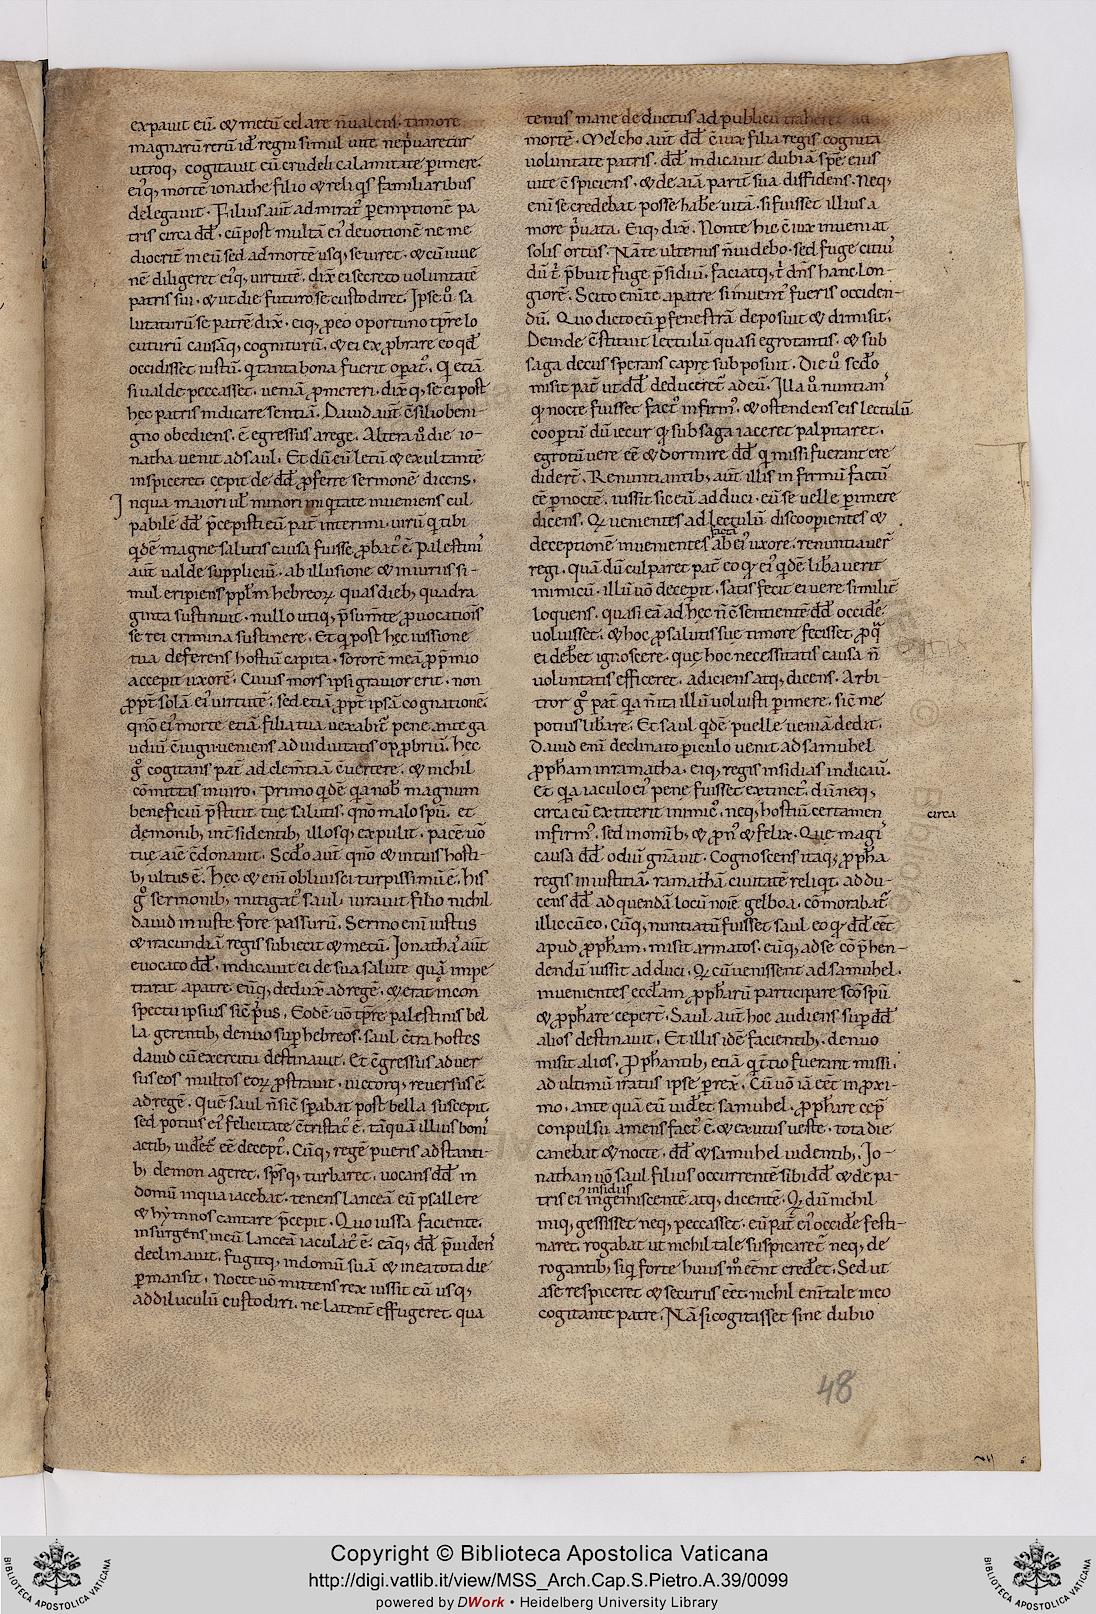 expauit eū. & metū celare n̄ualens. timore
magnarū rerū id ē regni simul uite nep̄uaretur
utroq;. cogitauit eū crudeli calamitate ꝑimere.
ei'q; mortē ionathe filio & reliqs familiaribus
delegauit. Filius aut̄ admirat' ꝑemptionē pa
tris circa dd̄. cū post multā ei' devotionē ne me
diocrit̄ in eū sed ad mortē usq; seuiret. & cū iuue
nē diligeret ei'q; uirtutē. dix̄ ei secreto uoluntatē
patris sui. & ut die futuro se custodiret. Ipse u͛ sa
lutaturū se patrē dix̄. eiq; ꝓ eo oportuno tp̄re lo
cuturū causāq; cogniturū. & ei exꝓbrare eo qd̄
occidisset iustū. q tanta bona fuerit oꝑat'. Qi etiā
si ualde peccasset. ueniā ꝓmereri. dix̄q; se ei post
hęc patris indicare sentn̄iā. Dauid aut̄ c̄silio beni-
gno obediens. ē egressus a rege. Altera u͛ die io-
natha uenit ad saul. Et dū eū letū & exultantē
inspiceret. cepit de dd̄ ꝓferre sermonē dicens.
Inqua maiori ul̄ minori iniqtate inueniens cul
pabilē dd̄ p̄cepisti eū pat̄ interimi. uirū q tibi
qdē magne salutis causa fuisse ꝓbat' ē. palestini'
aut̄ ualde suppliciū. ab illusione & iniuriis si-
mul eripiens ppl̄m hebreoꝝ quas dieb; quadra
ginta sustinuit. nullo utiq; p̄sum̄te ꝓuocationis
se rei crimina sustinere. Et q post hęc iussione
tua deferens hostiū capita. sororē meā ꝓ p̄mio
accepit uxorē. Cuius mors ipsi grauior erit. non
ꝓpt̄ solā ei' uirtutē. sed etiā ꝓpt̄ ipsā cognationē.
qn̄o ei' morte etiā filia tua uexabit' pene ante ga
udiū c̄iugii ueniens ad uiduitatis opꝓbriū. hęc
g͛ cogitans pat̄ ad clem̄tiā c̄uertere. & nichil
cōmittas in uiro. primo qdē qa nob̄ magnum
beneficiū p̄stitit tuę salutis. qn̄o malo spū. et
demonib; int̄ sidentib; illosq; expulit. pacē uo͛
tuę aīe c̄donauit. Sed͛o aut̄ qn̄o & in tuis hosti-
b; ultus ē. hęc & enī obliuisci turpissimū ē. his
g͛ sermonib; mitigat' saul. iurauit filio nichil
dauid iniuste fore passurū. Sermo enī iustus
& iracundiā regis subiecit & metū. Ionathas aut̄
euocato dd̄. indicauit ei de sua salute quā impe
trarat a patre. eūq; deduxit ad regē. & erat in con
spectu ipsius sic p̄us. Eodē uo͛ tp̄re palestinis bel
la gerentib; denuo suꝑ hebreos. saul c̄tra hostes
dauid cū exercitu destinauit. Et c̄gressus aduer
sus eos multos eoꝝ ꝓstrauit. uictorq; reuersus ē.
ad regē. Quē saul n̄ sic sꝑabat post bella suscepit.
sed potius ei' felicitate c̄tristat' ē. tāquā illius boni'
actib; uidet' eē decept'. Cūq; regē pueris adstanti-
b; demon ageret. sps̄q; turbaret. uocans dd̄ in
domū inqua iacebat. tenens lanceā eū psallere
& hymnos cantare p̄cepit. Quo iussa faciente.
insurgens in eū lanceā iaculat' ē. eāq; dd̄ p̄uidens
declinauit. fugitq; in domū suā & in ea tota die
ꝑmansit. Nocte uo͛ mittens rex iussit eū usq;
ad diluculū custodiri. ne latent̄ effugeret. qua
tenus mane deductus ad publicū traheret ad
mortē. Melcho aut̄ dd̄ c̄iux filia regis cognita
uoluntate patris. dd̄ indicauit dubiā spē eius
uite c̄spiciens. & de aīa partis sua diffidens. Neq;
enī se credebat posse habere uitā. si fuisset illius a
more p̄uata. Eiq; dix̄. Non te hic c̄iux inueniat
solis ortus. Nā te ulterius n̄ uidebo. sed fuge citiu'
dū t̄ p̄buit fuge p̄sidiū. faciatq; t̄ dn̄s hanc lon-
giorē. Scito enī te a patre si inuent' fueris occiden-
dū. Quo dicto eū ꝑ fenestrā deposuit & dimisit.
Deinde c̄stituit lectulū quasi egrotantis. & sub
saga decus sperans capre supposuit. Die u͛ sed͛o
misit pat̄ ut dd̄ deduceret' ad eū. Illa u͛ nuntians
qꝫ nocte fuisset fact' infirm'. & ostendens eis lectulū
cooptū dū iecur qꝫ sub saga iaceret palpitaret.
egrotū uere eē & dormire dd̄ q missi fuerant cre
diderunt. Renuntiantib; aut̄ illis infirmū factū
eē ꝑ noctē. iussit sic eū adduci. cū se uelle ꝑimere
dicens. Qꝫ uenientes ad lectulū discooperientes &
deceptionē inuenientes facta ab ei' uxore. renuntiauer̄
regi. quā dū culparet pat̄ eo qꝫ ei' qdē lib̄auerit
inimicū. illū uo͛ deceperit. satisfecit ei uere similit̄
loquens. quasi eā ad hęc n̄ c̄sentientē dd̄ occidē
uoluisset. & hoc ꝓ salutis sue timore fecisset. ꝓ qa
ei deberet ignoscere. que hoc necessitatis causa n̄
uoluntatis efficeret. adiciens atq; dicens. Arbi-
tror g͛ pat̄ qa n̄ ita illū uoluisti ꝑimere. sic̄ me
potius lib̄are. Et saul qdē puelle ueniā dedit.
Dauid enī declinato ꝑiculo uenit ad samuhel
ꝓph̄am in ramatha. eiq; regis insidias indicauit.
Et qa iaculo ei' penę fuisset extinct'. dū neq;
circa eū extiterit inimic'. neq; hostiū certamen
circa
infirm'. sed in omīb; & ꝓn' & felix. Que magis
causa dd̄ odiū gn̄auit. Cognoscens itaq; ꝓph̄a
regis iniustitiā. ramathā ciuitatē reliqt. addu-
cens dd̄ ad quendā locū noīe gelboa. cōmorabat'
illic cū eo. Cūq; nuntiatū fuisset saul eo qꝫ dd̄ eēt
apud ꝓph̄am. misit armatos. eūq; ad se cōp̄hen-
dendū iussit adduci. Qꝫ cū uenissent ad samuhel.
inuenientes eccl̄am ꝓph̄arū participare scō spū
& ꝓph̄are ceperunt. Saul aut̄ hoc audiens suꝑ dd̄
alios destinauit. Et illis idē facientib;. denuo
misit alios. Proph̄antib; etiā q tertio fuerant missi.
ad ultimū iratus ipse ꝑrex̄. Cū uo͛ iā eēt in proxi-
mo. ante quā eū uideret samuhel. ꝓph̄are cepit
conpulsu. amens fact' ē. & exutus ueste. tota die
canebat & nocte. dd̄ & samuhel uidentib;. Io-
nathan uo͛ saul filius occurrentē sibi dd̄ & de pa-
tris ei' insidiis ingemiscentē atq; dicentē. Qꝫ dū nichil
iniq; gessisset neq; peccasset. eū pat̄ ei' occidere festi-
naret. rogabat ut nichil tale suspicaret' neq; de
rogantib; siqui forte huius m͛ eēnt crederet. Sed ut
a se respiceret & securus eēt. nichil enī tale in eo
cogitante patre. Nā si cogitasset sine dubio
48
Copyright © Biblioteca Apostolica Vaticana
http://digi.vatlib.it/view/MSS_Arch.Cap.S.Pietro.A.39/0099
powered by DWork • Heidelberg University Library
BIBLIOTECA APOSTOLICA VATICANA
BIBLIOTECA APOSTOLICA VATICANA